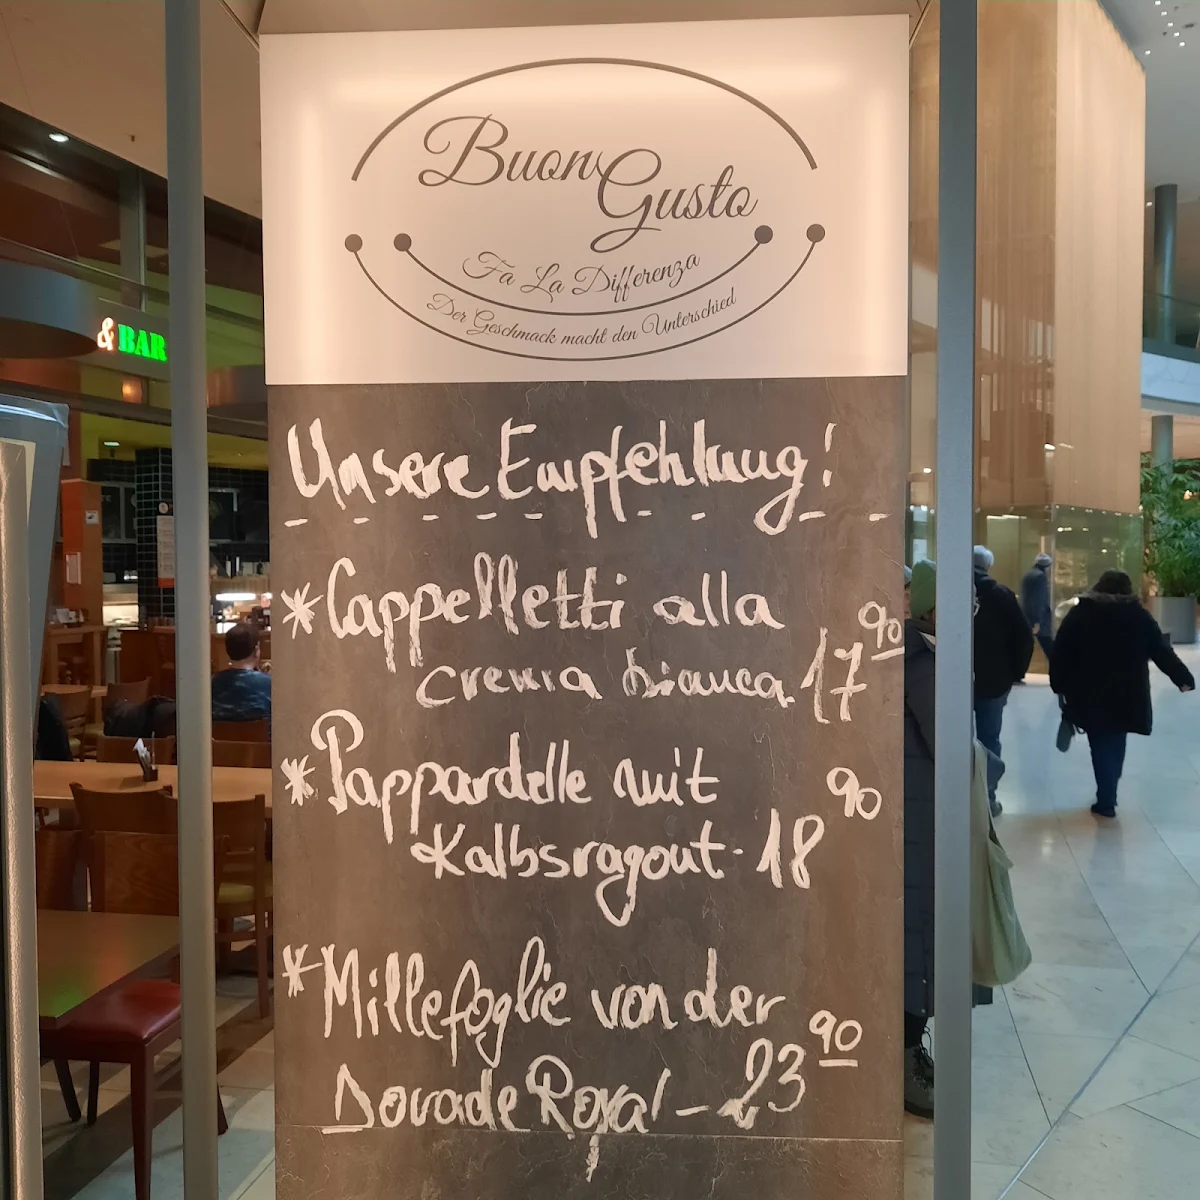 Buon Gusto
Fa La Differenza
Der Geschmack macht den Unterschied
& BAR
Unsere Empfehlung!
* Cappelletti alla
crema bianca. 17 90
* Pappardelle mit
Kalbsragout - 18 90
* Millefoglie von der
Dorade Royal - 23 90